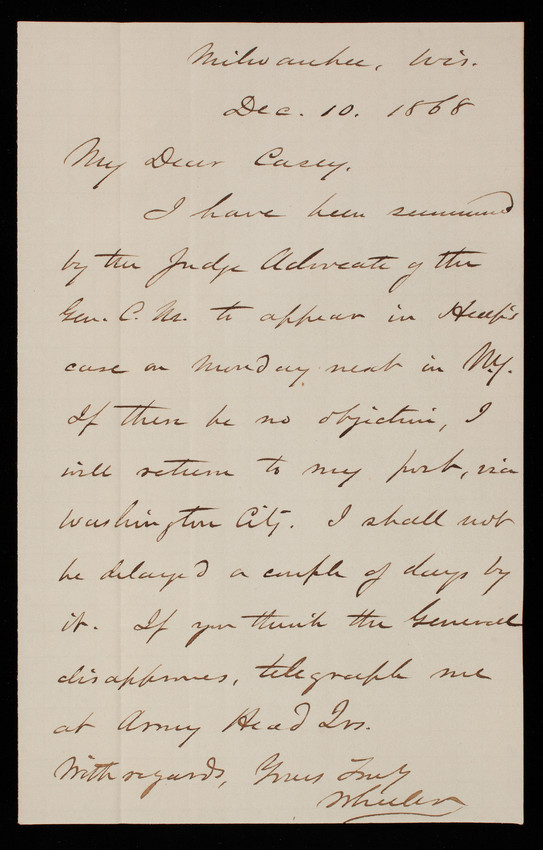 Milwaukee, Wis.
Dec. 10. 1868
My Dear Casey,
I have been summoned
by the Judge Advocate of the
Gen. C. M. to appear in Heap's
case on Monday next in N.Y.
If there be no objection, I
will return to my post, via
Washington City. I shall not
be delayed a couple of days by
it. If you think the General
disapproves, telegraph me
at Army Head Qrs.
With regards, Yours Truly
Wheeler